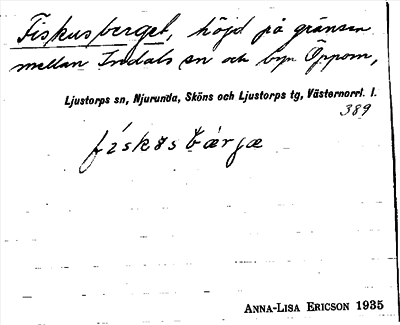 Fiskusberget, höjd på gränsen
mellan Indals sn och byn Oppom,
Ljustorps sn, Njurunda, Sköns och Ljustorps tg, Västernorrl. l.
389
fiskɵsbærjæ
ANNA-LISA ERICSON 1935